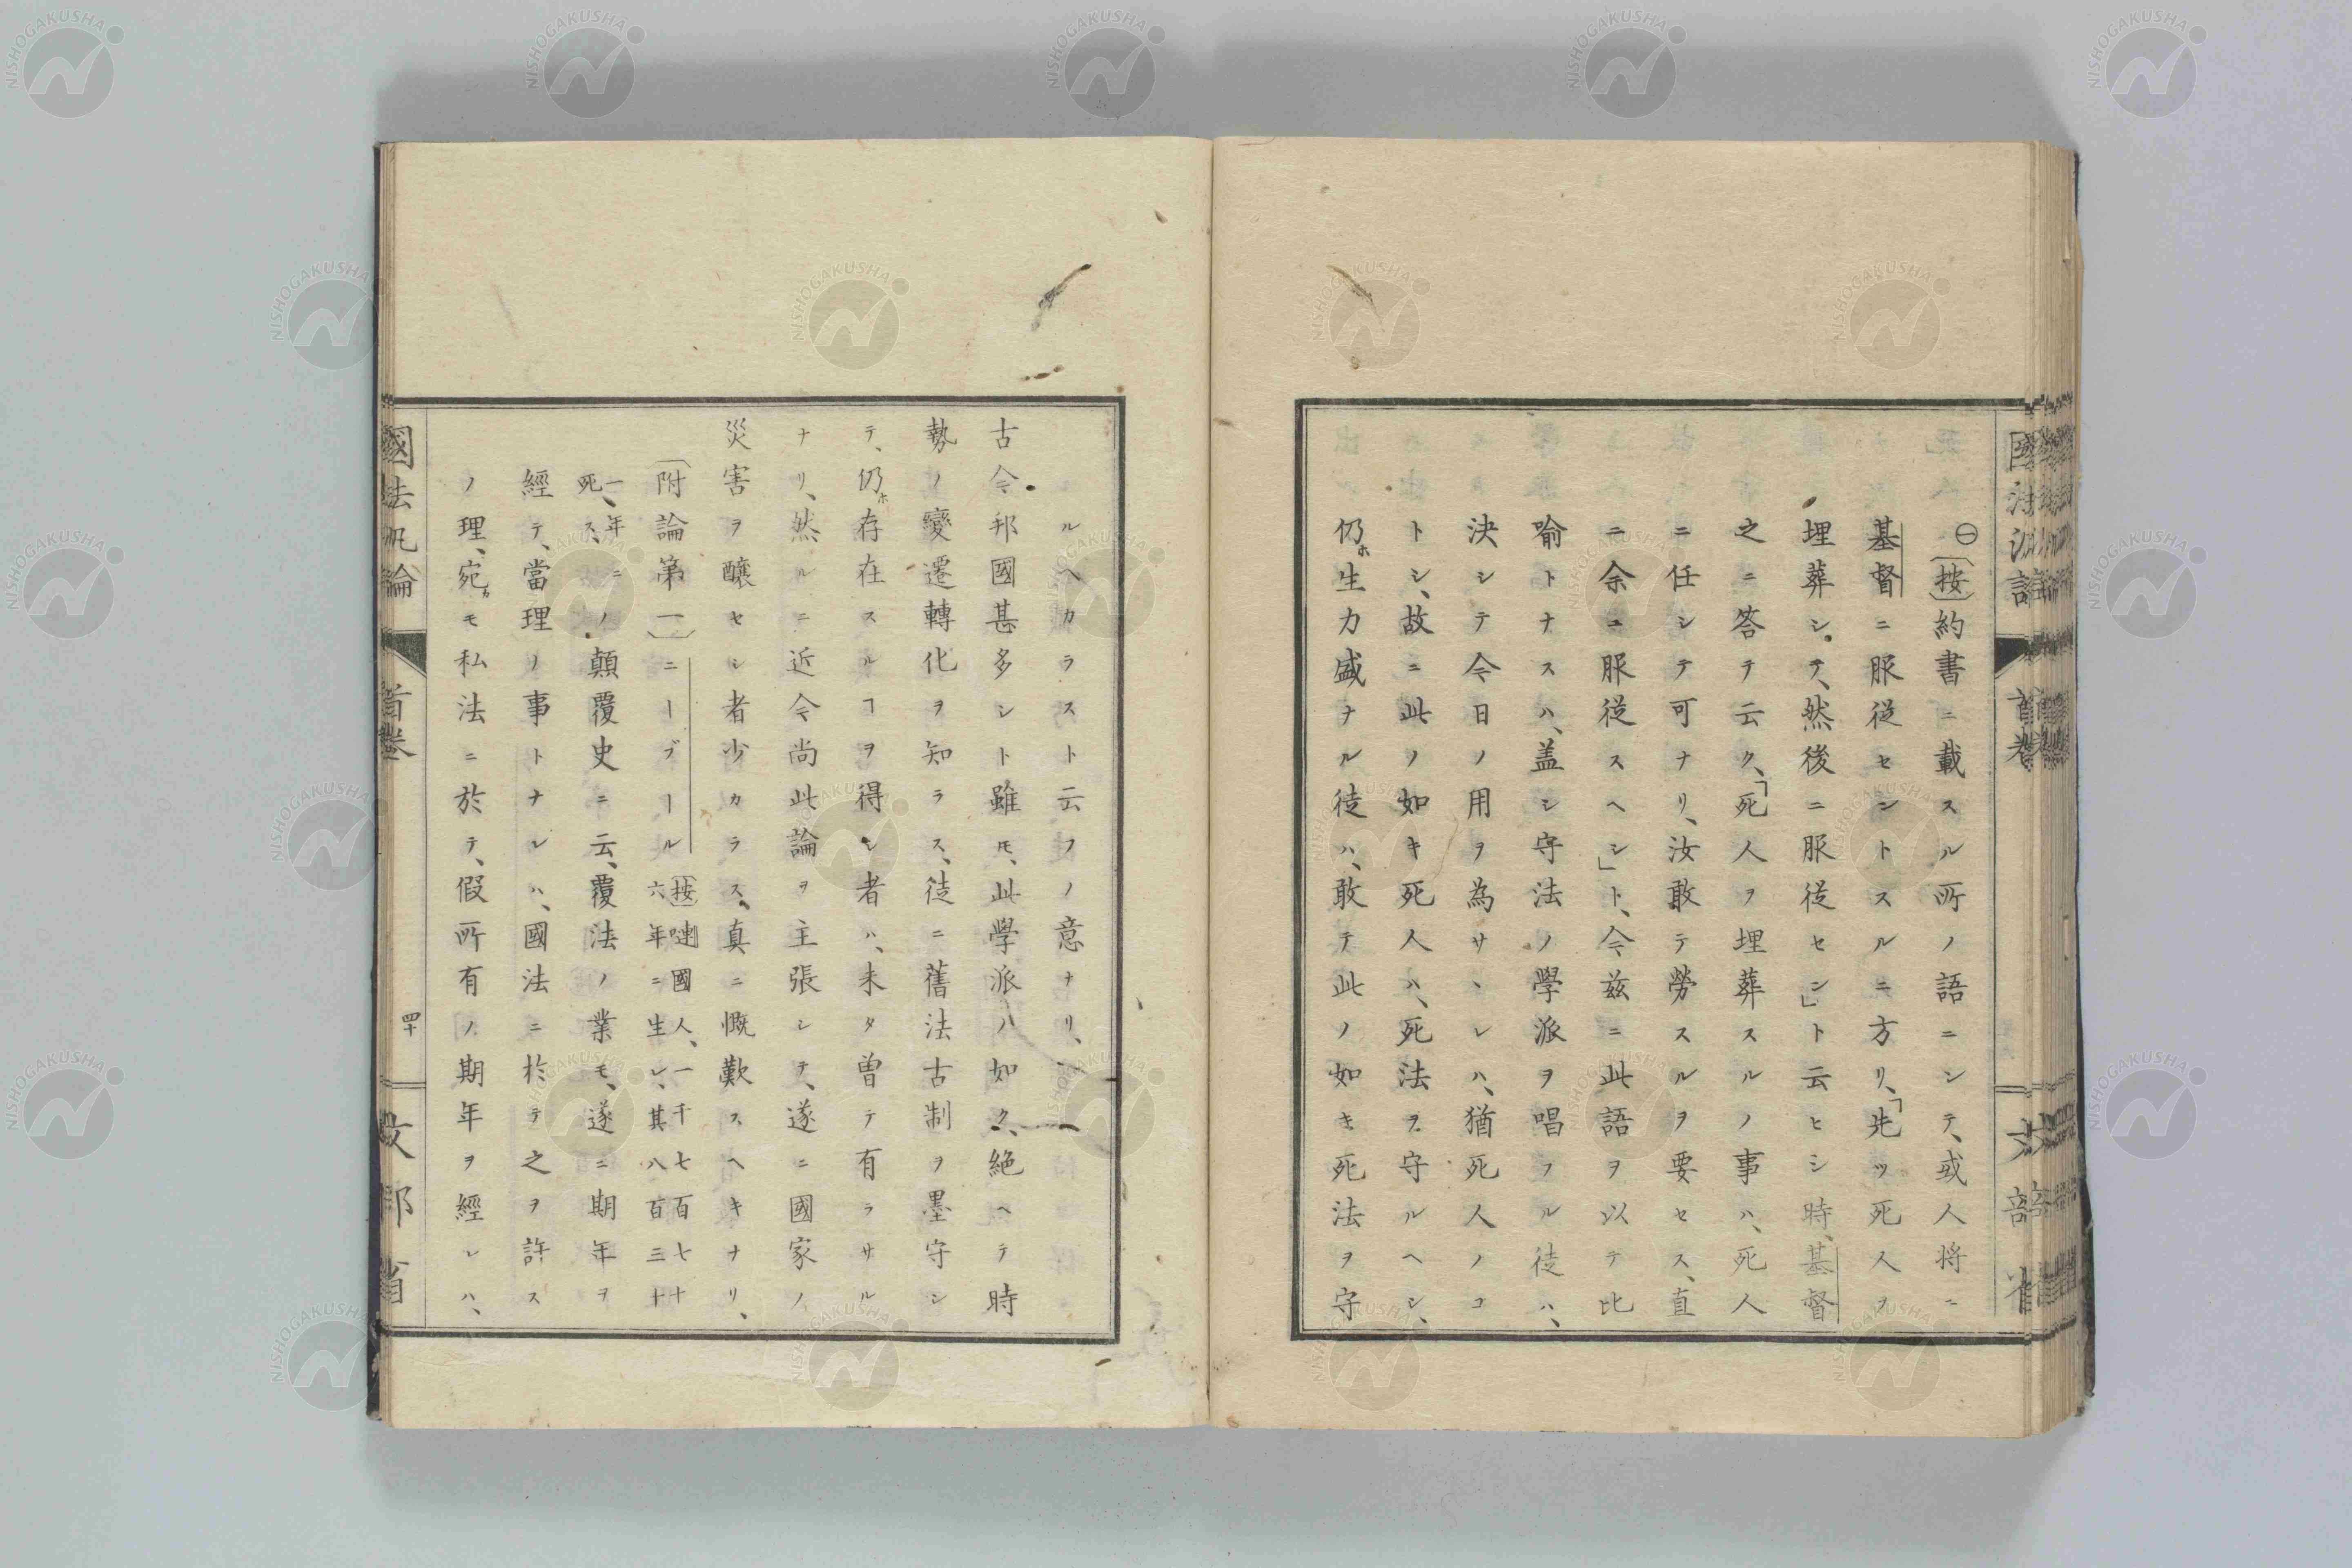 ㊀〔按〕約書ニ載スル所ノ語ニシテ、或人将ニ
基督ニ服従セントスルニ方リ、「先ツ死人ヲ
埋葬シ。テ、然後ニ服従セン」ト云ヒシ時、基督
之ニ答テ云ク、「死人ヲ埋葬スルノ事ハ、死人
ニ任シテ可ナリ、汝敢テ勞スルヲ要セス、直
ニ余ニ服従スヘシ」ト、今茲ニ此語ヲ以テ比
喩トナスハ、盖シ守法ノ學派ヲ唱フル徒ハ、
決シテ今日ノ用ヲ為サヽレハ、猶死人ノコ
トシ、故ニ此ノ如キ死人ハ、死法ヲ守ルヘシ、
仍ホ生力盛ナル徒ハ、敢テ此ノ如キ死法ヲ守
ルヘカラスト云フノ意ナリ、
古今邦國甚多シト雖モ、此學派ノ如ク、絶ヘテ時
勢ノ變遷轉化ヲ知ラス、徒ニ舊法古制ヲ墨守シ
テ、仍ホ存在スルヿヲ得シ者ハ、未タ曽テ有ラサル
ナリ、然ルニ近今尚此論ヲ主張シテ、遂ニ國家ノ
災害ヲ醸セシ者少カラス、真ニ慨歎スヘキナリ、
〔附論第一〕ニーブール〔按〕嗹國人、一千七百七十
六年ニ生レ、其八百三十
一年ニ
死ス、ノ顛覆史ニ云、覆法ノ業モ、遂ニ期年ヲ
經テ、當理ノ事トナレハ、國法ニ於テ之ヲ許ス
ノ理、宛カモ私法ニ於テ、假所有ノ期年ヲ經レハ、
國法汎論
首巻
四十
文部省
國法汎論
首巻
文部省
NISHOGAKUSHA